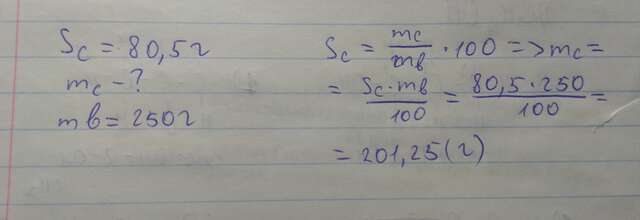 Sс = 80,5г
mс - ?
mв = 250г
Sс = mс/mв · 100 => mс =
= Sс · mв/100 = 80,5 · 250/100 =
= 201,25 (г)